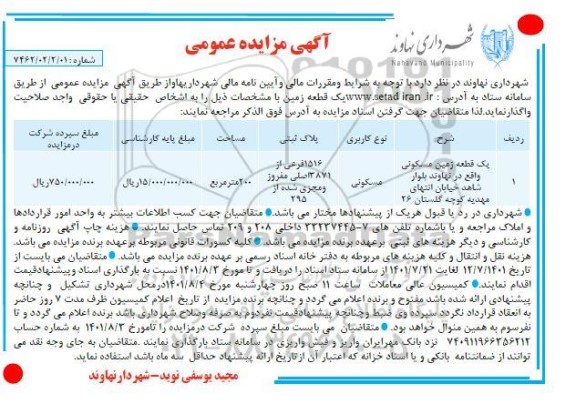 شهرداری نهاوند
Nahavand Municipality
آگهی مزایده عمومی
شماره: ۷۴۶۲/۰۲/۲/۰۱
شهرداری نهاوند در نظر دارد با توجه به شرایط ومقررات مالی و آیین نامه مالی شهرداریهاواز طریق آگهی مزایده عمومی از طریق
سامانه ستاد به آدرس : www.setad iran .ir یک قطعه زمین با مشخصات ذیل را به اشخاص حقیقی یا حقوقی واجد صلاحیت
واگذارنماید.لذا متقاضیان جهت گرفتن اسناد مزایده به آدرس فوق الذکر مراجعه نمایند:
ردیف شرح: نوع کاربری پلاک ثبتی مساحت مبلغ پایه کارشناسی مبلغ سپرده شرکت درمزایده
۱ یک قطعه زمین مسکونی واقع در نهاوند بلوار شاهد خیابان انتهای مهدیه کوچه گلستان ۲۶ مسکونی ۱۵۱۶فرعی از ۳۸۷۱اصلی مفروز ومجزی شده از ۲۹۵ ۲۰۰مترمربع ۱۵/۰۰۰/۰۰۰/۰۰۰ریال ۷۵۰/۰۰۰/۰۰۰ریال
* شهرداری در رد یا قبول هریک از پیشنهادها مختار می باشد.* متقاضیان جهت کسب اطلاعات بیشتر به واحد امور قراردادها
و املاک مراجعه و یا باشماره تلفن های ۷-۳۳۲۳۷۴۴۵ داخلی ۲۰۸ و ۲۰۹ تماس حاصل نمایند.* هزینه چاپ آگهی روزنامه و
کارشناسی و دیگر هزینه های ثبتی برعهده برنده مزایده می باشد.* کلیه کسورات قانونی مربوطه برعهده برنده مزایده می باشد.
هزینه نقل و انتقال و کلیه هزینه های مربوطه به دفتر خانه اسناد رسمی بر عهده برنده مزایده می باشد.* متقاضیان می بایست از
تاریخ ۱۲/۷/۱۴۰۱ لغایت ۱۴۰۱/۷/۲۱ از سامانه ستاد اسناد را دریافت و تا مورخ ۱۴۰۱/۸/۳ نسبت به بارگذاری اسناد وپیشنهادقیمت
اقدام نمایند.* کمیسیون عالی معاملات ساعت ۱۱ صبح روز چهارشنبه مورخ۱۴۰۱/۸/۴درمحل شهرداری تشکیل و چنانچه
پیشنهادی ارائه شده باشد مفتوح و برنده اعلام می گردد و چنانچه برنده مزایده از تاریخ اعلام کمیسیون ظرف مدت ۷ روز حاضر
به انعقاد قرارداد نگردد سپرده وی ضبط وچنانچه پیشنهادقیمت نفردوم به صرفه وصلاح شهرداری باشد برنده اعلام می گردد و تا
نفرسوم به همین منوال خواهد بود.* متقاضیان می بایست مبلغ سپرده شرکت درمزایده را تامورخ ۱۴۰۱/۸/۳ به شماره حساب
۷۴۰۹۱۱۹۶۶۳۵۶۲۱۲ نزد بانک مهرایران واریز و فیش واریزی در سامانه ستاد بارگذاری نمایند .متقاضیان به جای وجه نقد می
توانند از ضمانتنامه بانکی و یا اسناد خزانه که اعتبار آن ازتاریخ ارائه پیشنهاد حداقل تا سه ماه باشد استفاده نماید.
مجید یوسفی نوید-شهردارنهاوند